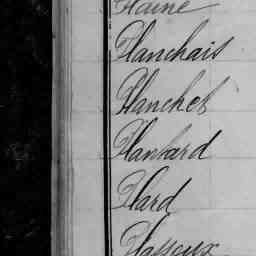 Plaine
Planchais
Planchet
Plantard
Plard
Plasseux